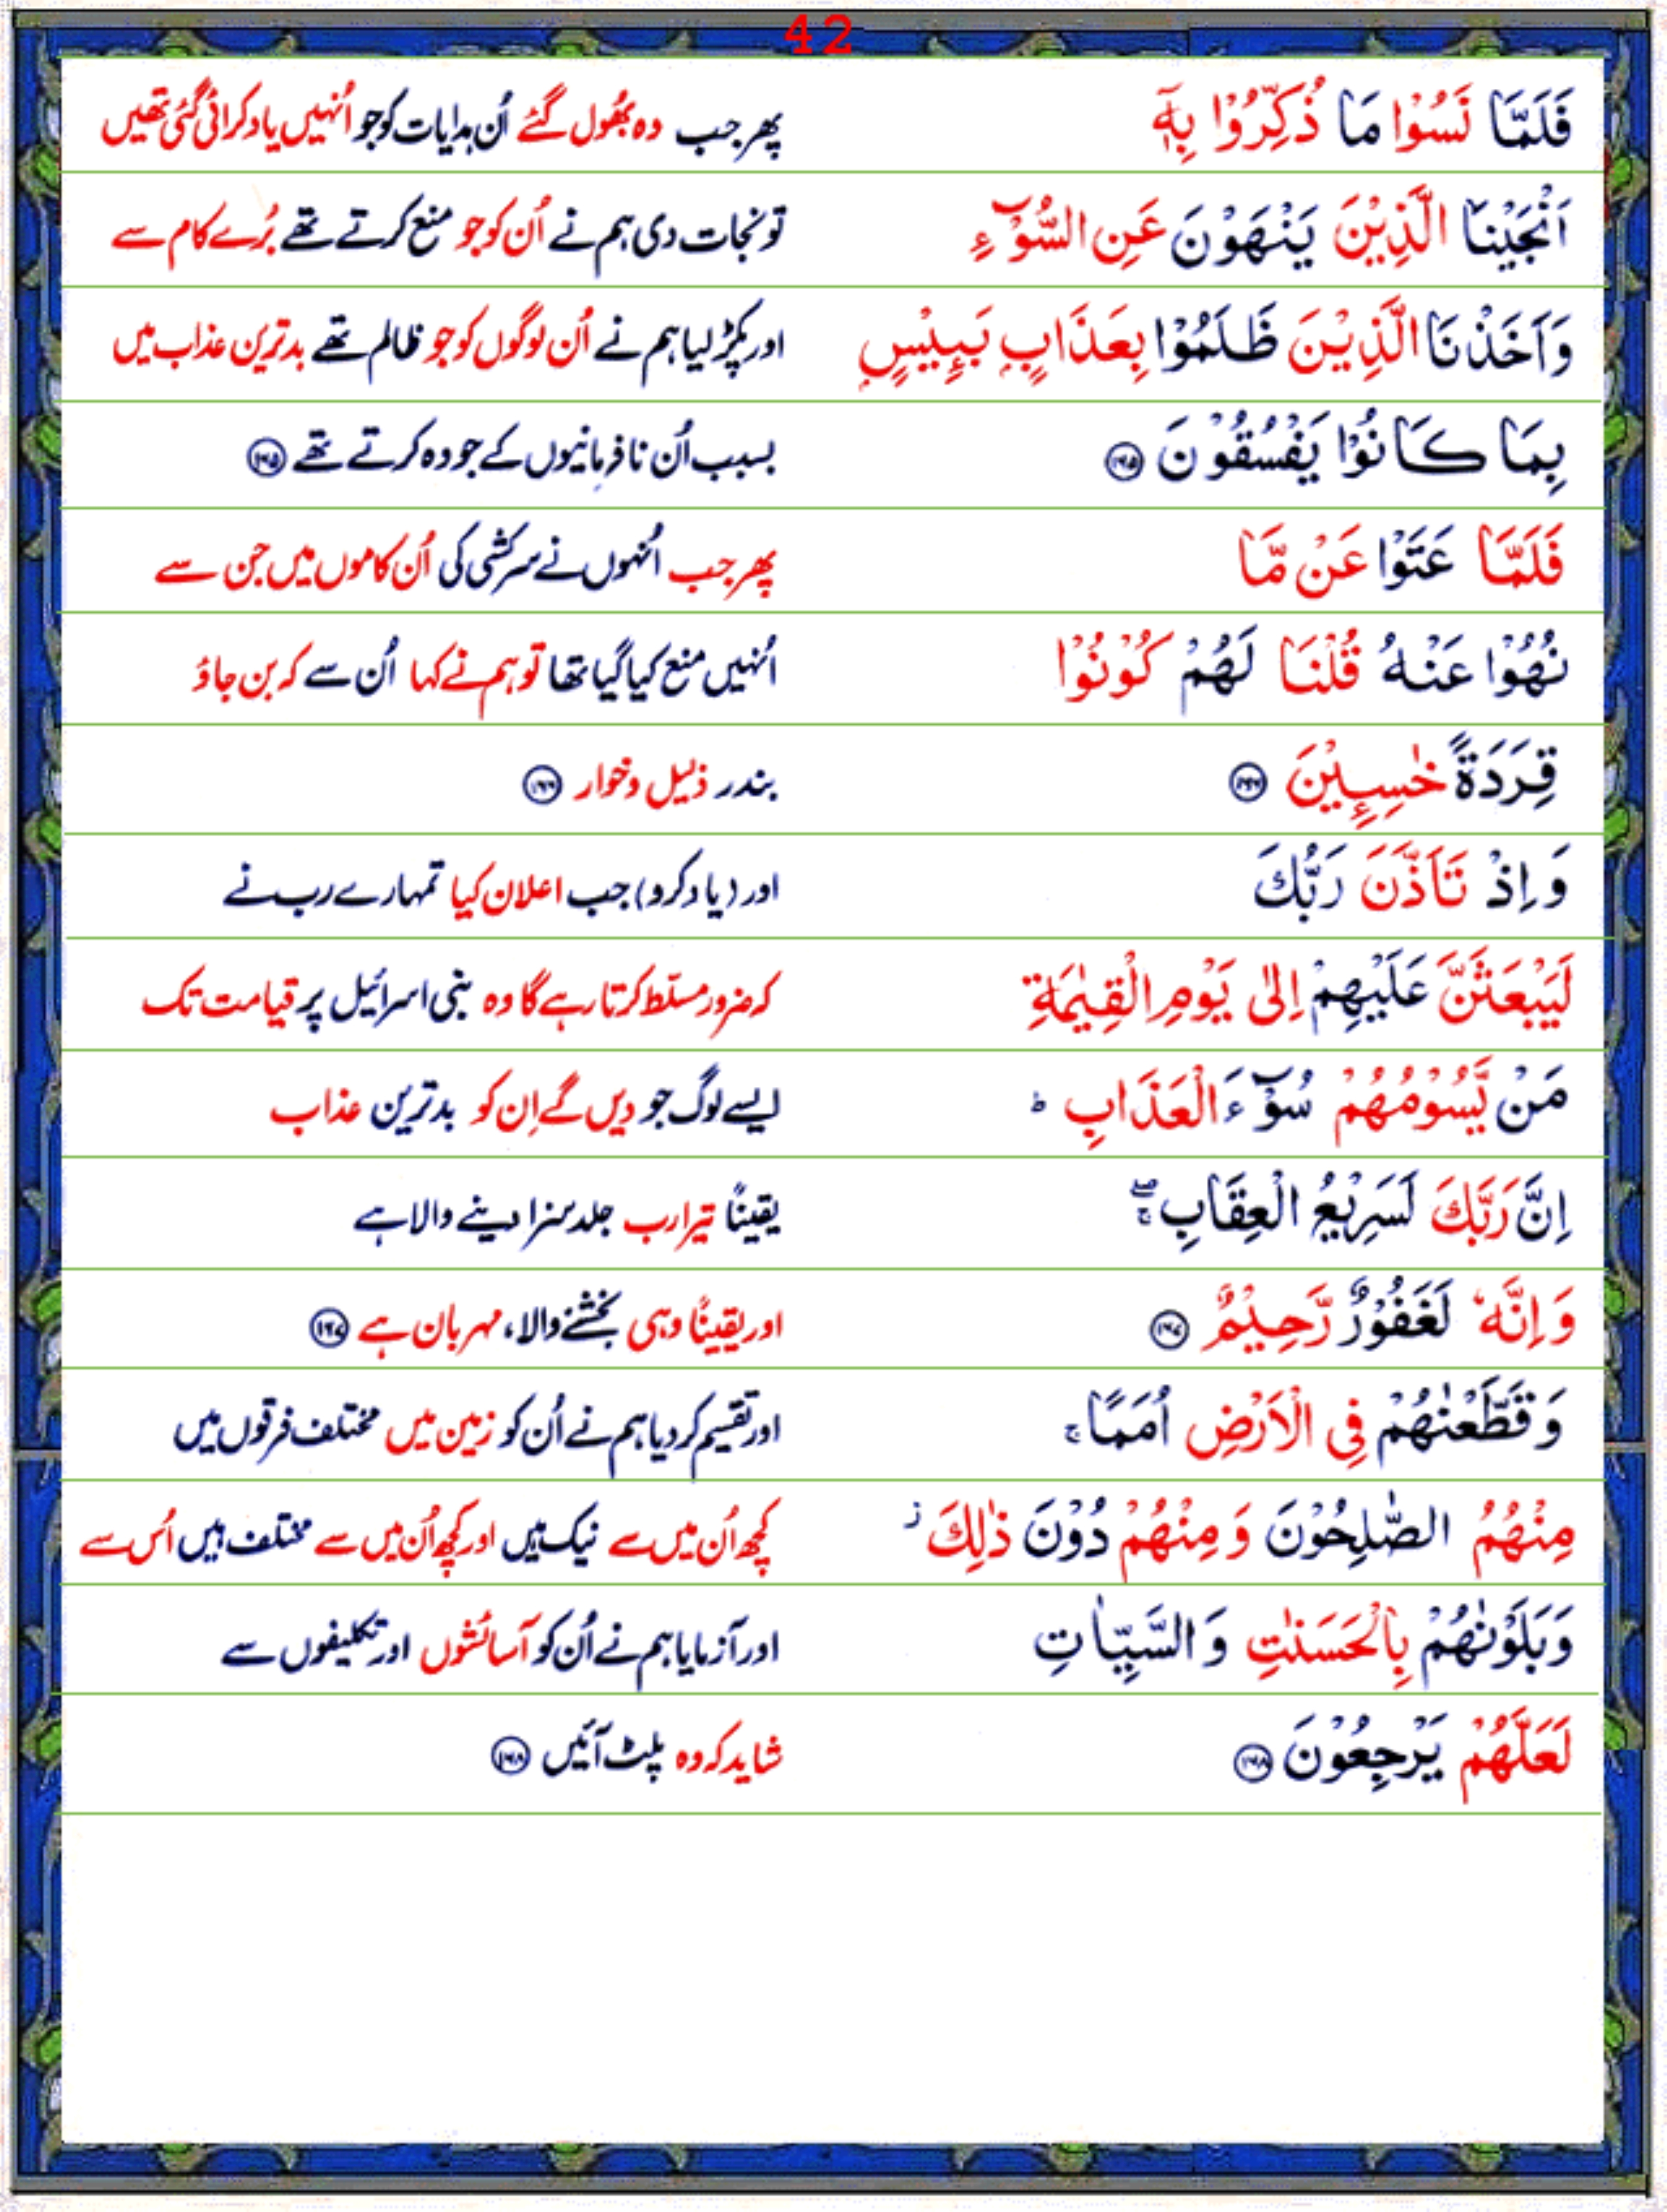 42
فَلَمَّا نَسُوْا مَا ذُكِّرُوْا بِهٖۤ پھر جب وہ بھُول گئے اُن ہدایات کو جو اُنہیں یاد کرائی گئی تھیں
اَنْجَيْنَا الَّذِيْنَ يَنْهَوْنَ عَنِ السُّوْٓءِ تو نجات دی ہم نے اُن کو جو منع کرتے تھے بُرے کام سے
وَاَخَذْنَا الَّذِيْنَ ظَلَمُوْا بِعَذَابٍۭ بَـِٕيْسٍۭ اور پکڑ لیا ہم نے اُن لوگوں کو جو ظالم تھے بدترین عذاب میں
بِمَا كَانُوْا يَفْسُقُوْنَ ۱۶۵ بسبب اُن نافرمانیوں کے جو وہ کرتے تھے ۱۶۵
فَلَمَّا عَتَوْا عَنْ مَّا پھر جب اُنہوں نے سرکشی کی اُن کاموں میں جن سے
نُهُوْا عَنْهُ قُلْنَا لَهُمْ كُوْنُوْا اُنہیں منع کیا گیا تھا تو ہم نے کہا اُن سے کہ بن جاؤ
قِرَدَةً خٰسِـِٕيْنَ ۱۶۶ بندر ذلیل و خوار ۱۶۶
وَاِذْ تَاَذَّنَ رَبُّكَ اور (یاد کرو) جب اعلان کیا تمہارے رب نے
لَيَبْعَثَنَّ عَلَيْهِمْ اِلٰى يَوْمِ الْقِيٰمَةِ کہ ضرور مسلّط کرتا رہے گا وہ بنی اسرائیل پر قیامت تک
مَنْ يَّسُوْمُهُمْ سُوْٓءَ الْعَذَابِ ؕ ایسے لوگ جو دیں گے اِن کو بدترین عذاب
اِنَّ رَبَّكَ لَسَرِيْعُ الْعِقَابِ ۖۚ یقیناً تیرا رب جلد سزا دینے والا ہے
وَاِنَّهٗ لَغَفُوْرٌ رَّحِيْمٌ ۱۶۷ اور یقیناً وہی بخشنے والا، مہربان ہے ۱۶۷
وَقَطَّعْنٰهُمْ فِى الْاَرْضِ اُمَمًا ۚ اور تقسیم کر دیا ہم نے اُن کو زمین میں مختلف فرقوں میں
مِنْهُمُ الصّٰلِحُوْنَ وَمِنْهُمْ دُوْنَ ذٰلِكَ ؗ کچھ اُن میں سے نیک ہیں اور کچھ اُن میں سے مختلف ہیں اُس سے
وَبَلَوْنٰهُمْ بِالْحَسَنٰتِ وَالسَّيِّاٰتِ اور آزمایا ہم نے اُن کو آسائشوں اور تکلیفوں سے
لَعَلَّهُمْ يَرْجِعُوْنَ ۱۶۸ شاید کہ وہ پلٹ آئیں ۱۶۸